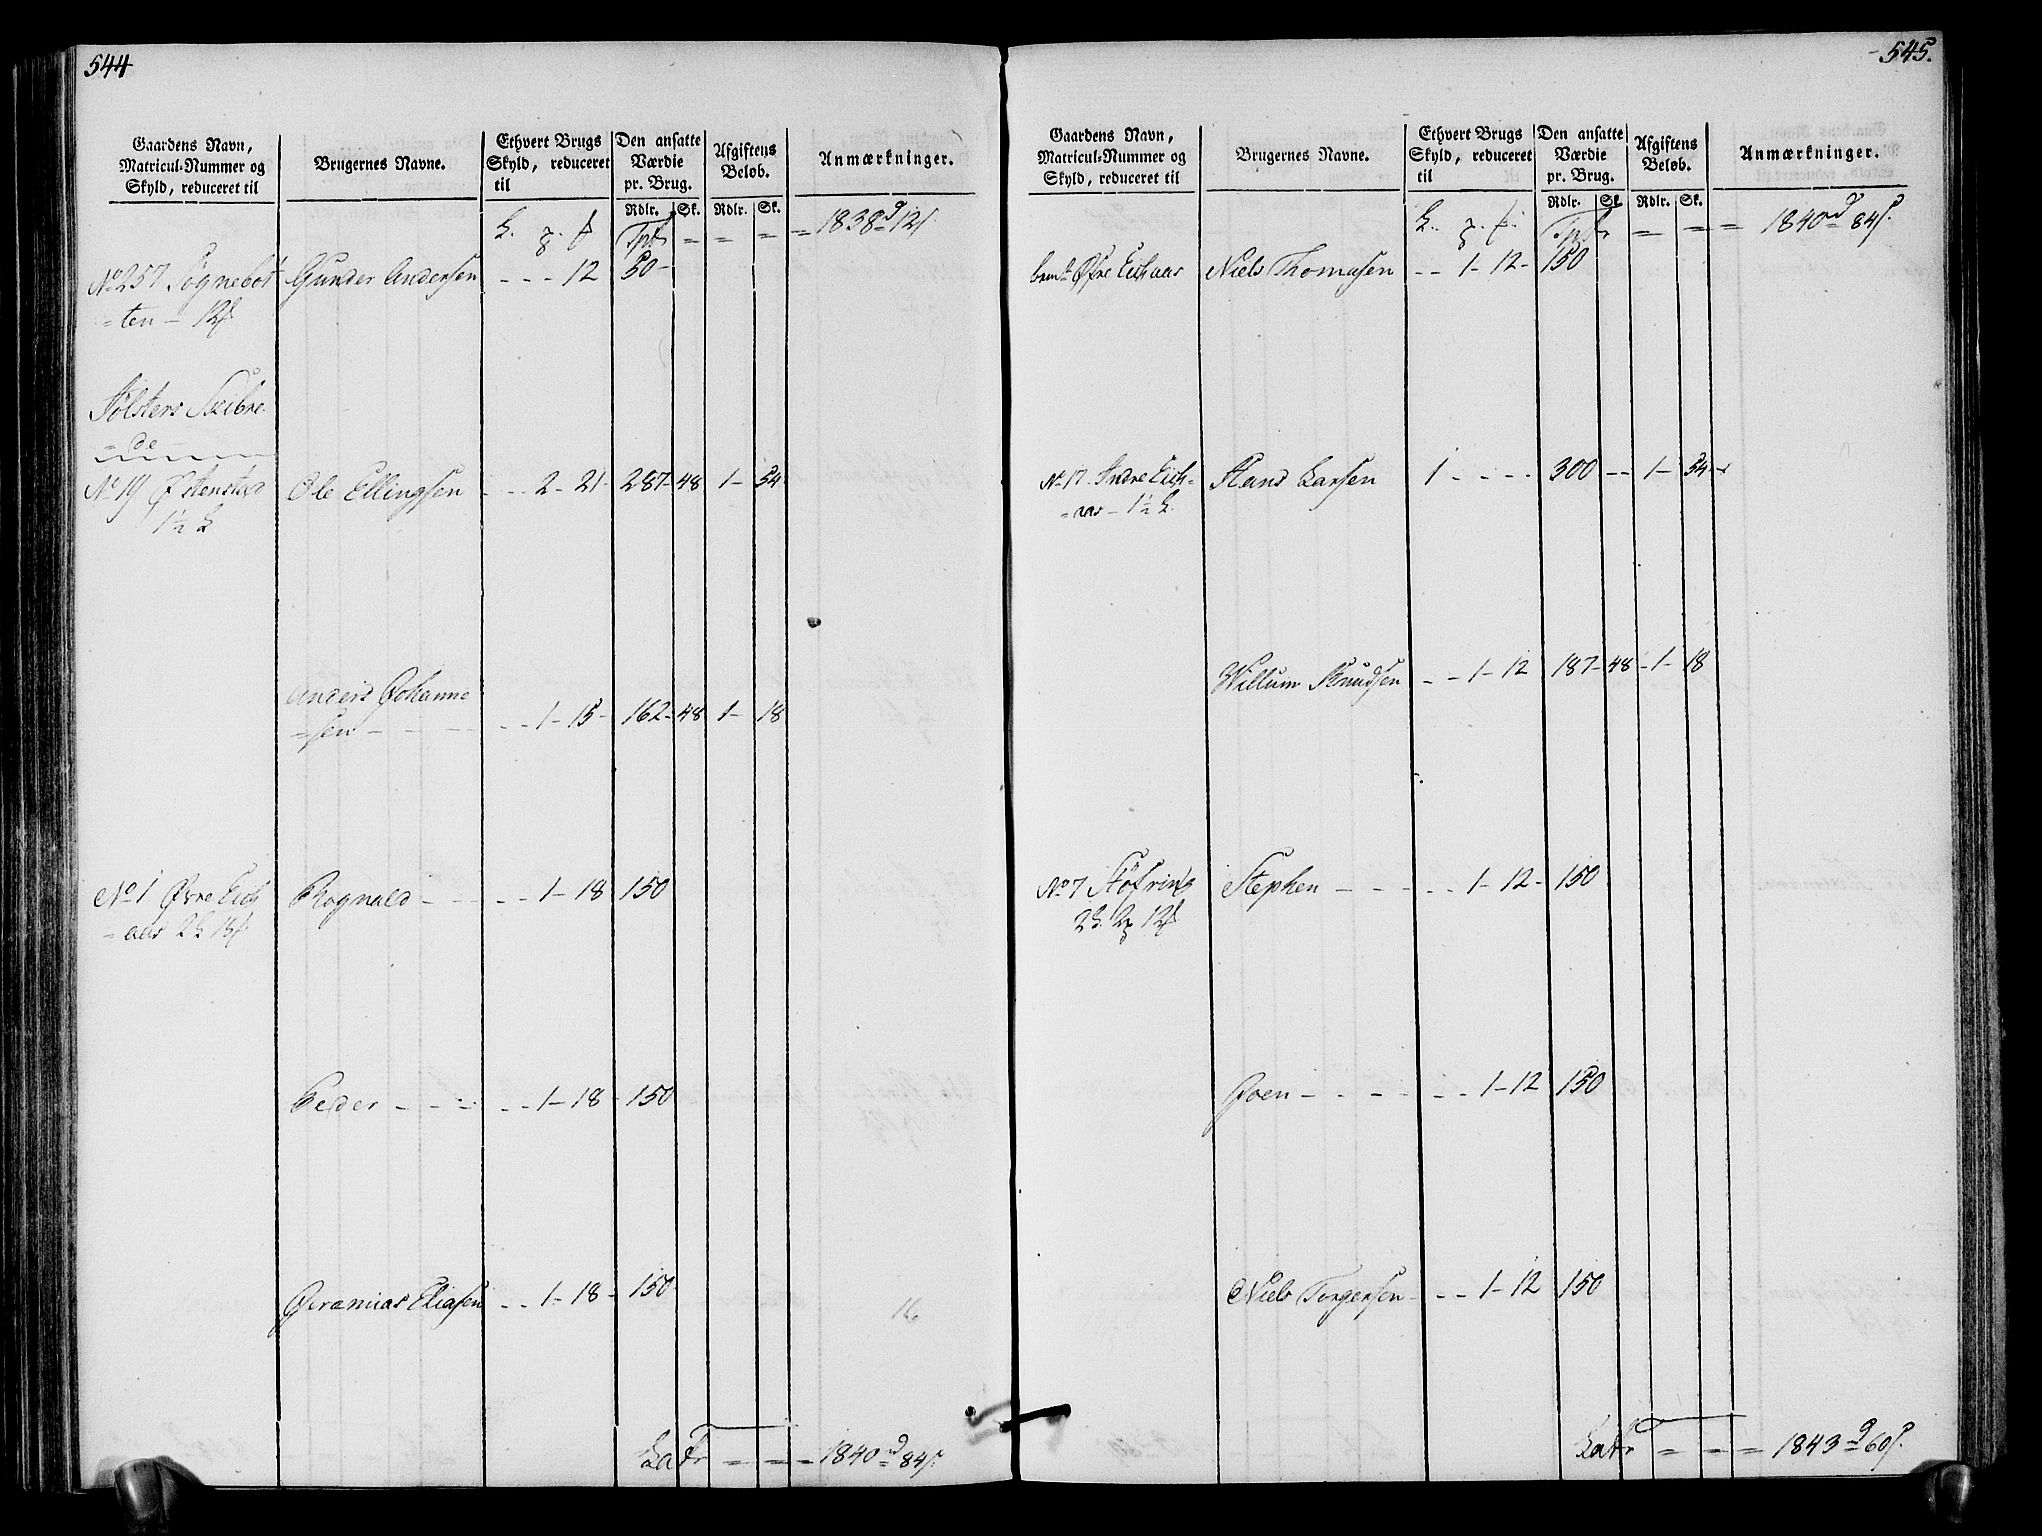 544
Gaardens Navn,
Matricul-Nummer og
Skyld, reduceret til
Brugernes Navne.
Ethvert Brugs
Skyld, reduceret
til
Den ansatte
Værdie
pr. Brug.
Afgiftens
Beløb.
Anmærkninger.
Rdlr. Sk. Rdlr. Sk.
Tpt = = = = 1838 d 12 s
No 257 Søgnebot Gunder Andersen - - - 12 50 -
= ten - 12
Jølsters Skibre
= de
No 19 Østenstad Ole Ellingsen - - 2 - 21 - 287 - 48 1 - 54
1½ L
Anders Johanne
= sen - - - - - 1 - 15 - 162 - 48 1 - 18
No 1 Øvre Eich Rognald - - - - 1 - 18 150
= aas 2 L 18
Peder - - - - - 1 - 18 - 150
Jeramias Eliasen - - 1 - 18 - 150
Latr = = = 1840 d 84 s.
545.
Gaardens Navn,
Matricul-Nummer og
Skyld, reduceret til
Brugernes Navne.
Ethvert Brugs
Skyld, reduceret
til
Den ansatte
Værdie
pr. Brug.
Afgiftens
Beløb.
Anmærkninger.
Rdlr. Sk. Rdlr. Sk.
Tpt = = = 1840 d 84 s.
Øvre Eichaas Niels Thomasen - - 1 - 12 - 150
No 17 Indre Eich= Hans Larsen 1 - - - - 300 - - 1 - 54
= aas - 1½ L.
Willum Knudsen - - 1 - 12 187 - 48 - 1 - 18
No 7 Støfring Stephen - - - - - 1 - 12 - 150
2 12
Joen - - - - - - 1 - 12 150
Niels Torgersen - - - 1 - 12 150
Latr = = = 1843 d 60 s.